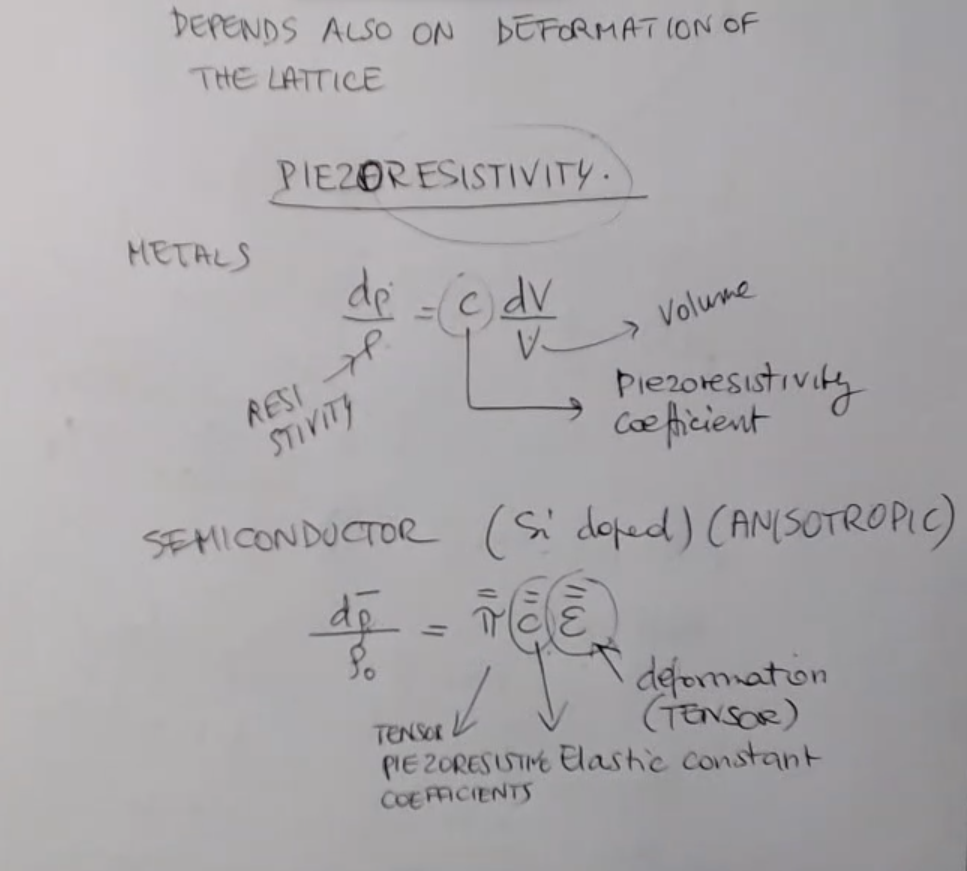 DEPENDS ALSO ON DEFORMATION OF
THE LATTICE
PIEZORESISTIVITY.
METALS
dρ/ρ = C dV/V
Volume
RESI
STIVITY
Piezoresistivity
coefficient
SEMICONDUCTOR (Si doped) (ANISOTROPIC)
dρ̄/ρ₀ = π̿ c̿ ε̿
deformation
(TENSOR)
TENSOR
PIEZORESISTIVE
COEFFICIENTS
Elastic constant